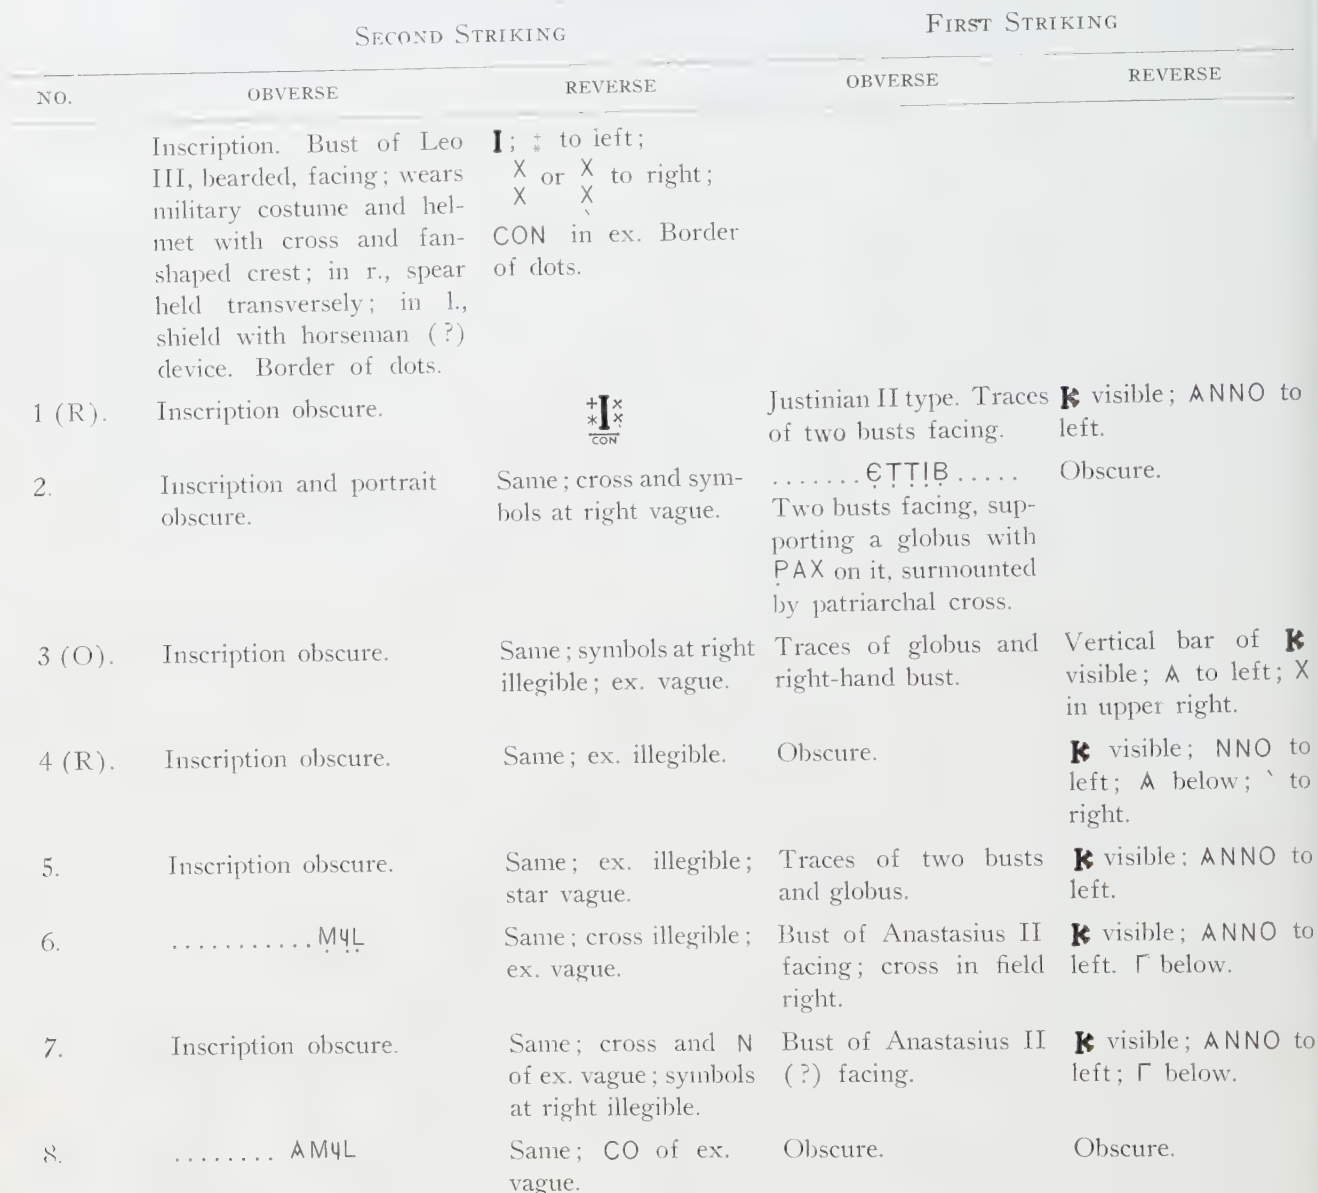 SECOND STRIKING
FIRST STRIKING
NO.
OBVERSE
REVERSE
OBVERSE
REVERSE
Inscription. Bust of Leo
III, bearded, facing; wears
military costume and hel-
met with cross and fan-
shaped crest; in r., spear
held transversely; in l.,
shield with horseman (?)
device. Border of dots.
I; to left;
X or X to right;
X X
CON in ex. Border
of dots.
1 (R).
Inscription obscure.
+ I X
* X
CON
Justinian II type. Traces
of two busts facing.
K visible; ANNO to
left.
2.
Inscription and portrait
obscure.
Same; cross and sym-
bols at right vague.
.......ЄṬṬỊḄ.....
Two busts facing, sup-
porting a globus with
P̣AX on it, surmounted
by patriarchal cross.
Obscure.
3 (O).
Inscription obscure.
Same; symbols at right
illegible; ex. vague.
Traces of globus and
right-hand bust.
Vertical bar of K
visible; A to left; X
in upper right.
4 (R).
Inscription obscure.
Same; ex. illegible.
Obscure.
K visible; NNO to
left; A below; ‵ to
right.
5.
Inscription obscure.
Same; ex. illegible;
star vague.
Traces of two busts
and globus.
K visible: ANNO to
left.
6.
...........ṂụḶ
Same; cross illegible;
ex. vague.
Bust of Anastasius II
facing; cross in field
right.
K visible; ANNO to
left. Γ below.
7.
Inscription obscure.
Same; cross and N
of ex. vague; symbols
at right illegible.
Bust of Anastasius II
(?) facing.
K visible; ANNO to
left; Γ below.
8.
........ AMЧL
Same; CO of ex.
vague.
Obscure.
Obscure.